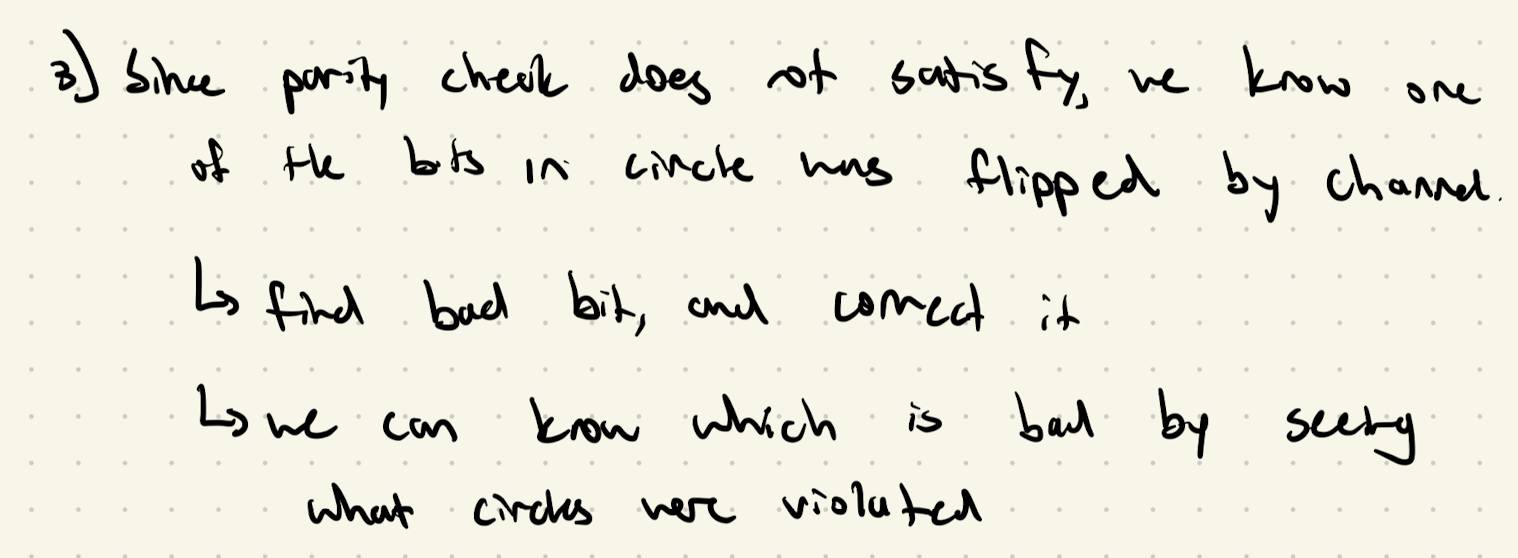 3) Since parity check does not satisfy, we know one
of the bits in circle was flipped by channel.
↳ find bad bit, and correct it
↳ we can know which is bad by seeing
what circles were violated